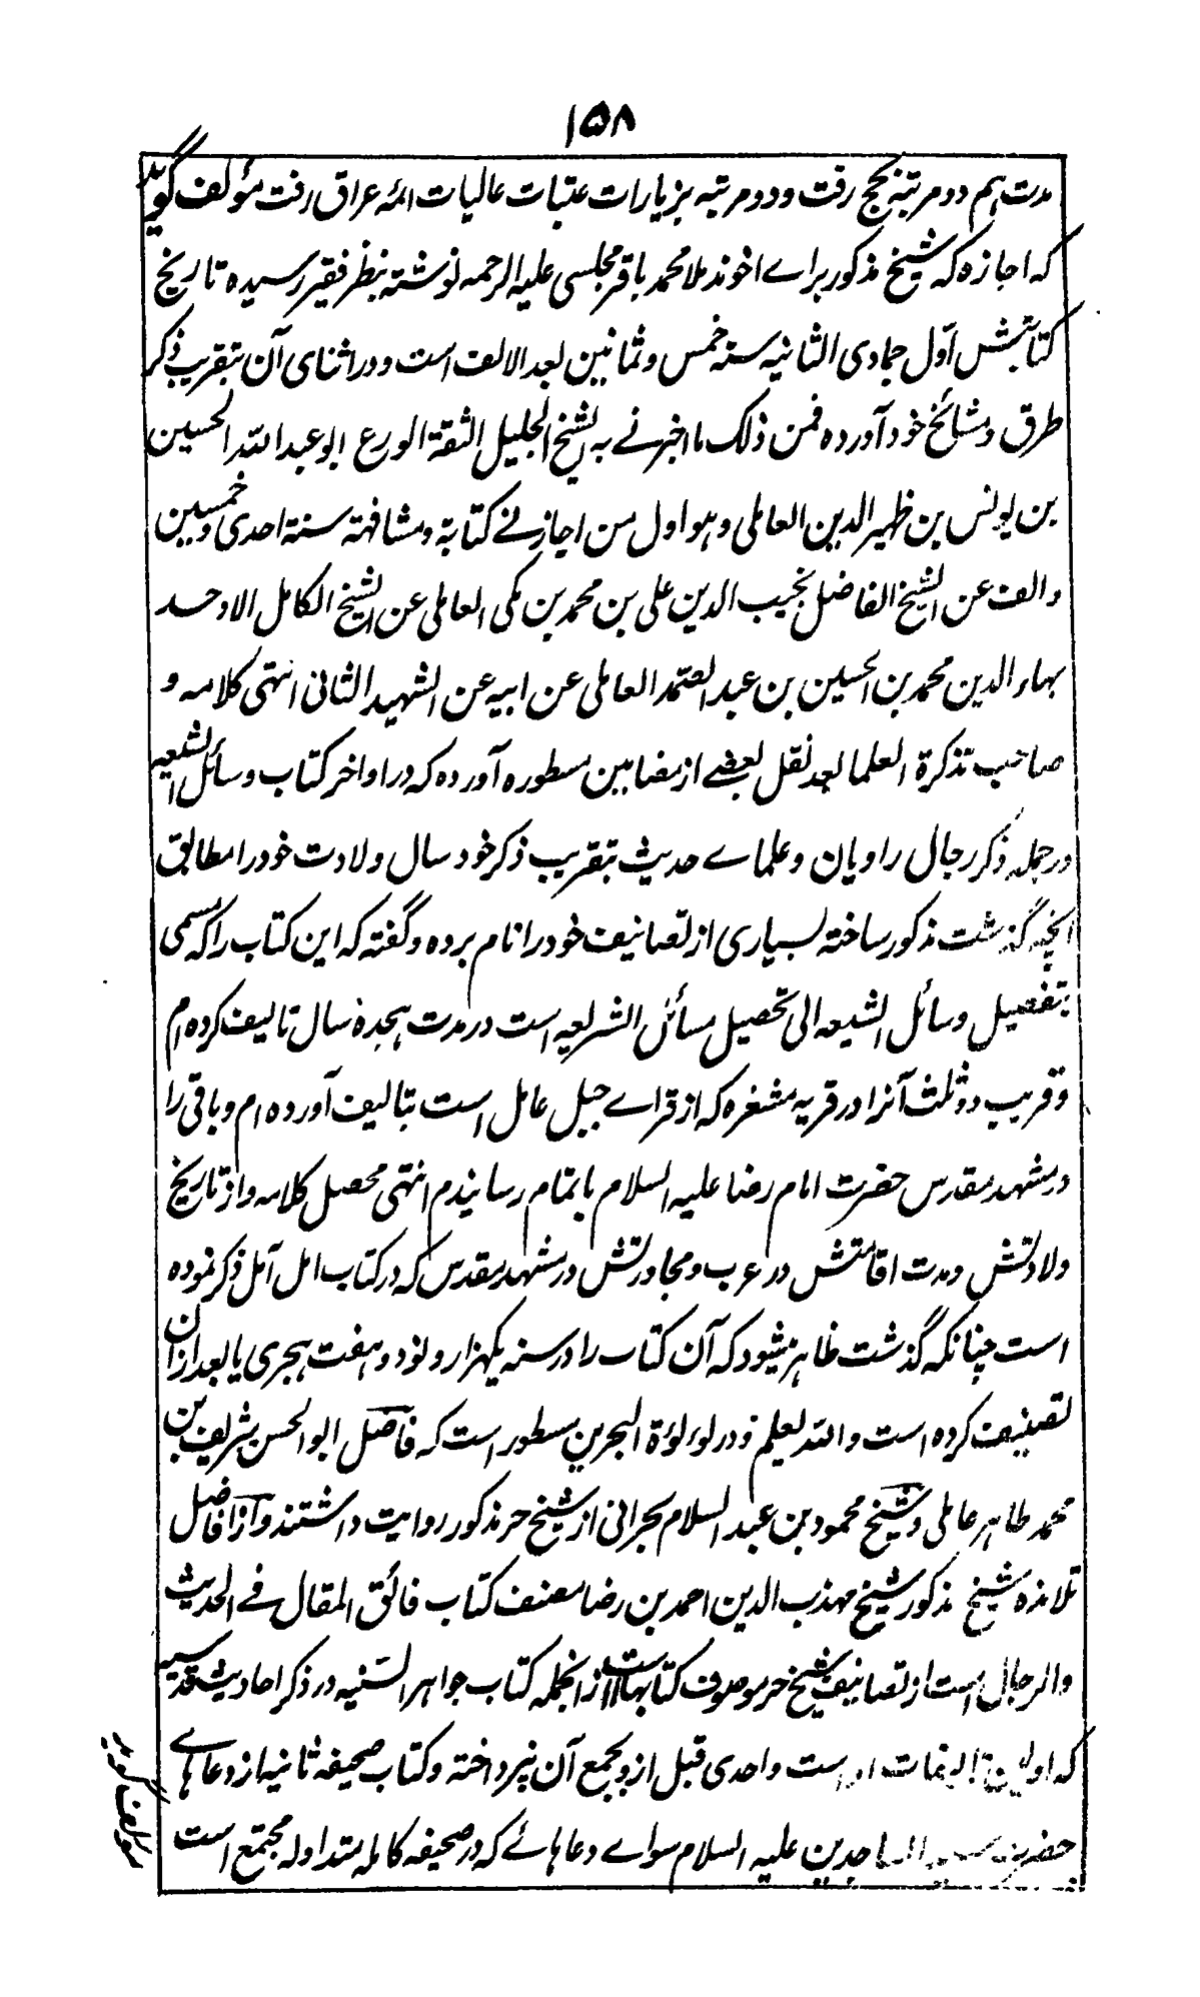 ۱۵۸
مدت ہم دو مرتبہ بحج رفت و دو مرتبہ بزیارات عتبات عالیات ائمہ عراق رفت مؤلف گوید
کہ اجازہ کہ شیخ مذکور برائے اخوند ملا محمد باقر مجلسی علیہ الرحمہ نوشتہ بنظر فقیر رسیدہ تاریخ
کتابتش اول جمادی الثانیہ سنہ خمس و ثمانین بعد الالف است و در اثنای آن بتقریب ذکر
طرق و مشائخ خود آوردہ فمن ذلک ما اخبرنے بہ الشیخ الجلیل الثقۃ الورع ابو عبد اللہ الحسین
بن یونس بن ظہیر الدین العاملی و ہو اول من اجازنے کتابۃ و مشافہۃ سنۃ احدی و خمسین
و الف عن الشیخ الفاضل نجیب الدین علی بن محمد بن مکی العاملی عن الشیخ الکامل الاوحد
بہاء الدین محمد بن الحسین بن عبد الصمد العاملی عن ابیہ عن الشہید الثانی انتہی کلامہ و
صاحب تذکرۃ العلما بعد نقل بعضے از مضامین مسطورہ آوردہ کہ در اواخر کتاب وسائل الشیعہ
در جملہ ذکر رجال راویان و علمائے حدیث بتقریب ذکر خود سال ولادت خود را مطابق
انچہ گذشت مذکور ساختہ بسیاری از تصانیف خود را نام بردہ و گفتہ کہ این کتاب را کہ مسمی
بتفصیل وسائل الشیعہ الی تحصیل مسائل الشریعہ است در مدت ہیجدہ سال تالیف کردہ ام
و قریب دو ثلث آنرا در قریہ مشغرہ کہ از قرائے جبل عامل است بتالیف آوردہ ام و باقی را
در مشہد مقدس حضرت امام رضا علیہ السلام باتمام رسانیدم انتہی محصل کلامہ و از تاریخ
ولادتش و مدت اقامتش در عرب و مجاورتش در مشہد مقدس کہ در کتاب امل آمل ذکر نمودہ
است چنانکہ گذشت ظاہر میشود کہ آن کتاب را در سنہ یکہزار و نود و ہفت ہجری یا بعد ازان
تصنیف کردہ است و اللہ یعلم و در لوءلوءۃ البحرین مسطور است کہ فاضل ابو الحسن شریف بن
محمد طاہر عاملی و شیخ محمود بن عبد السلام بحرانی از شیخ حر مذکور روایت داشتند و از افاضل
تلامذہ شیخ مذکور شیخ مہذب الدین احمد بن رضا مصنف کتاب فائق المقال فے الحدیث
والرجال است از تصانیف شیخ حر موصوف کتابہاست از انجملہ کتاب جواہر السنیہ در ذکر احادیث قدسیہ
کہ اولین تالیفات او است و احدی قبل ازو بجمع آن نپرداختہ و کتاب صحیفہ ثانیہ از دعاہائے
حضرت سید الساجدین علیہ السلام سوائے دعاہائے کہ در صحیفہ کاملہ متداولہ مجتمع است
مؤلف گوید